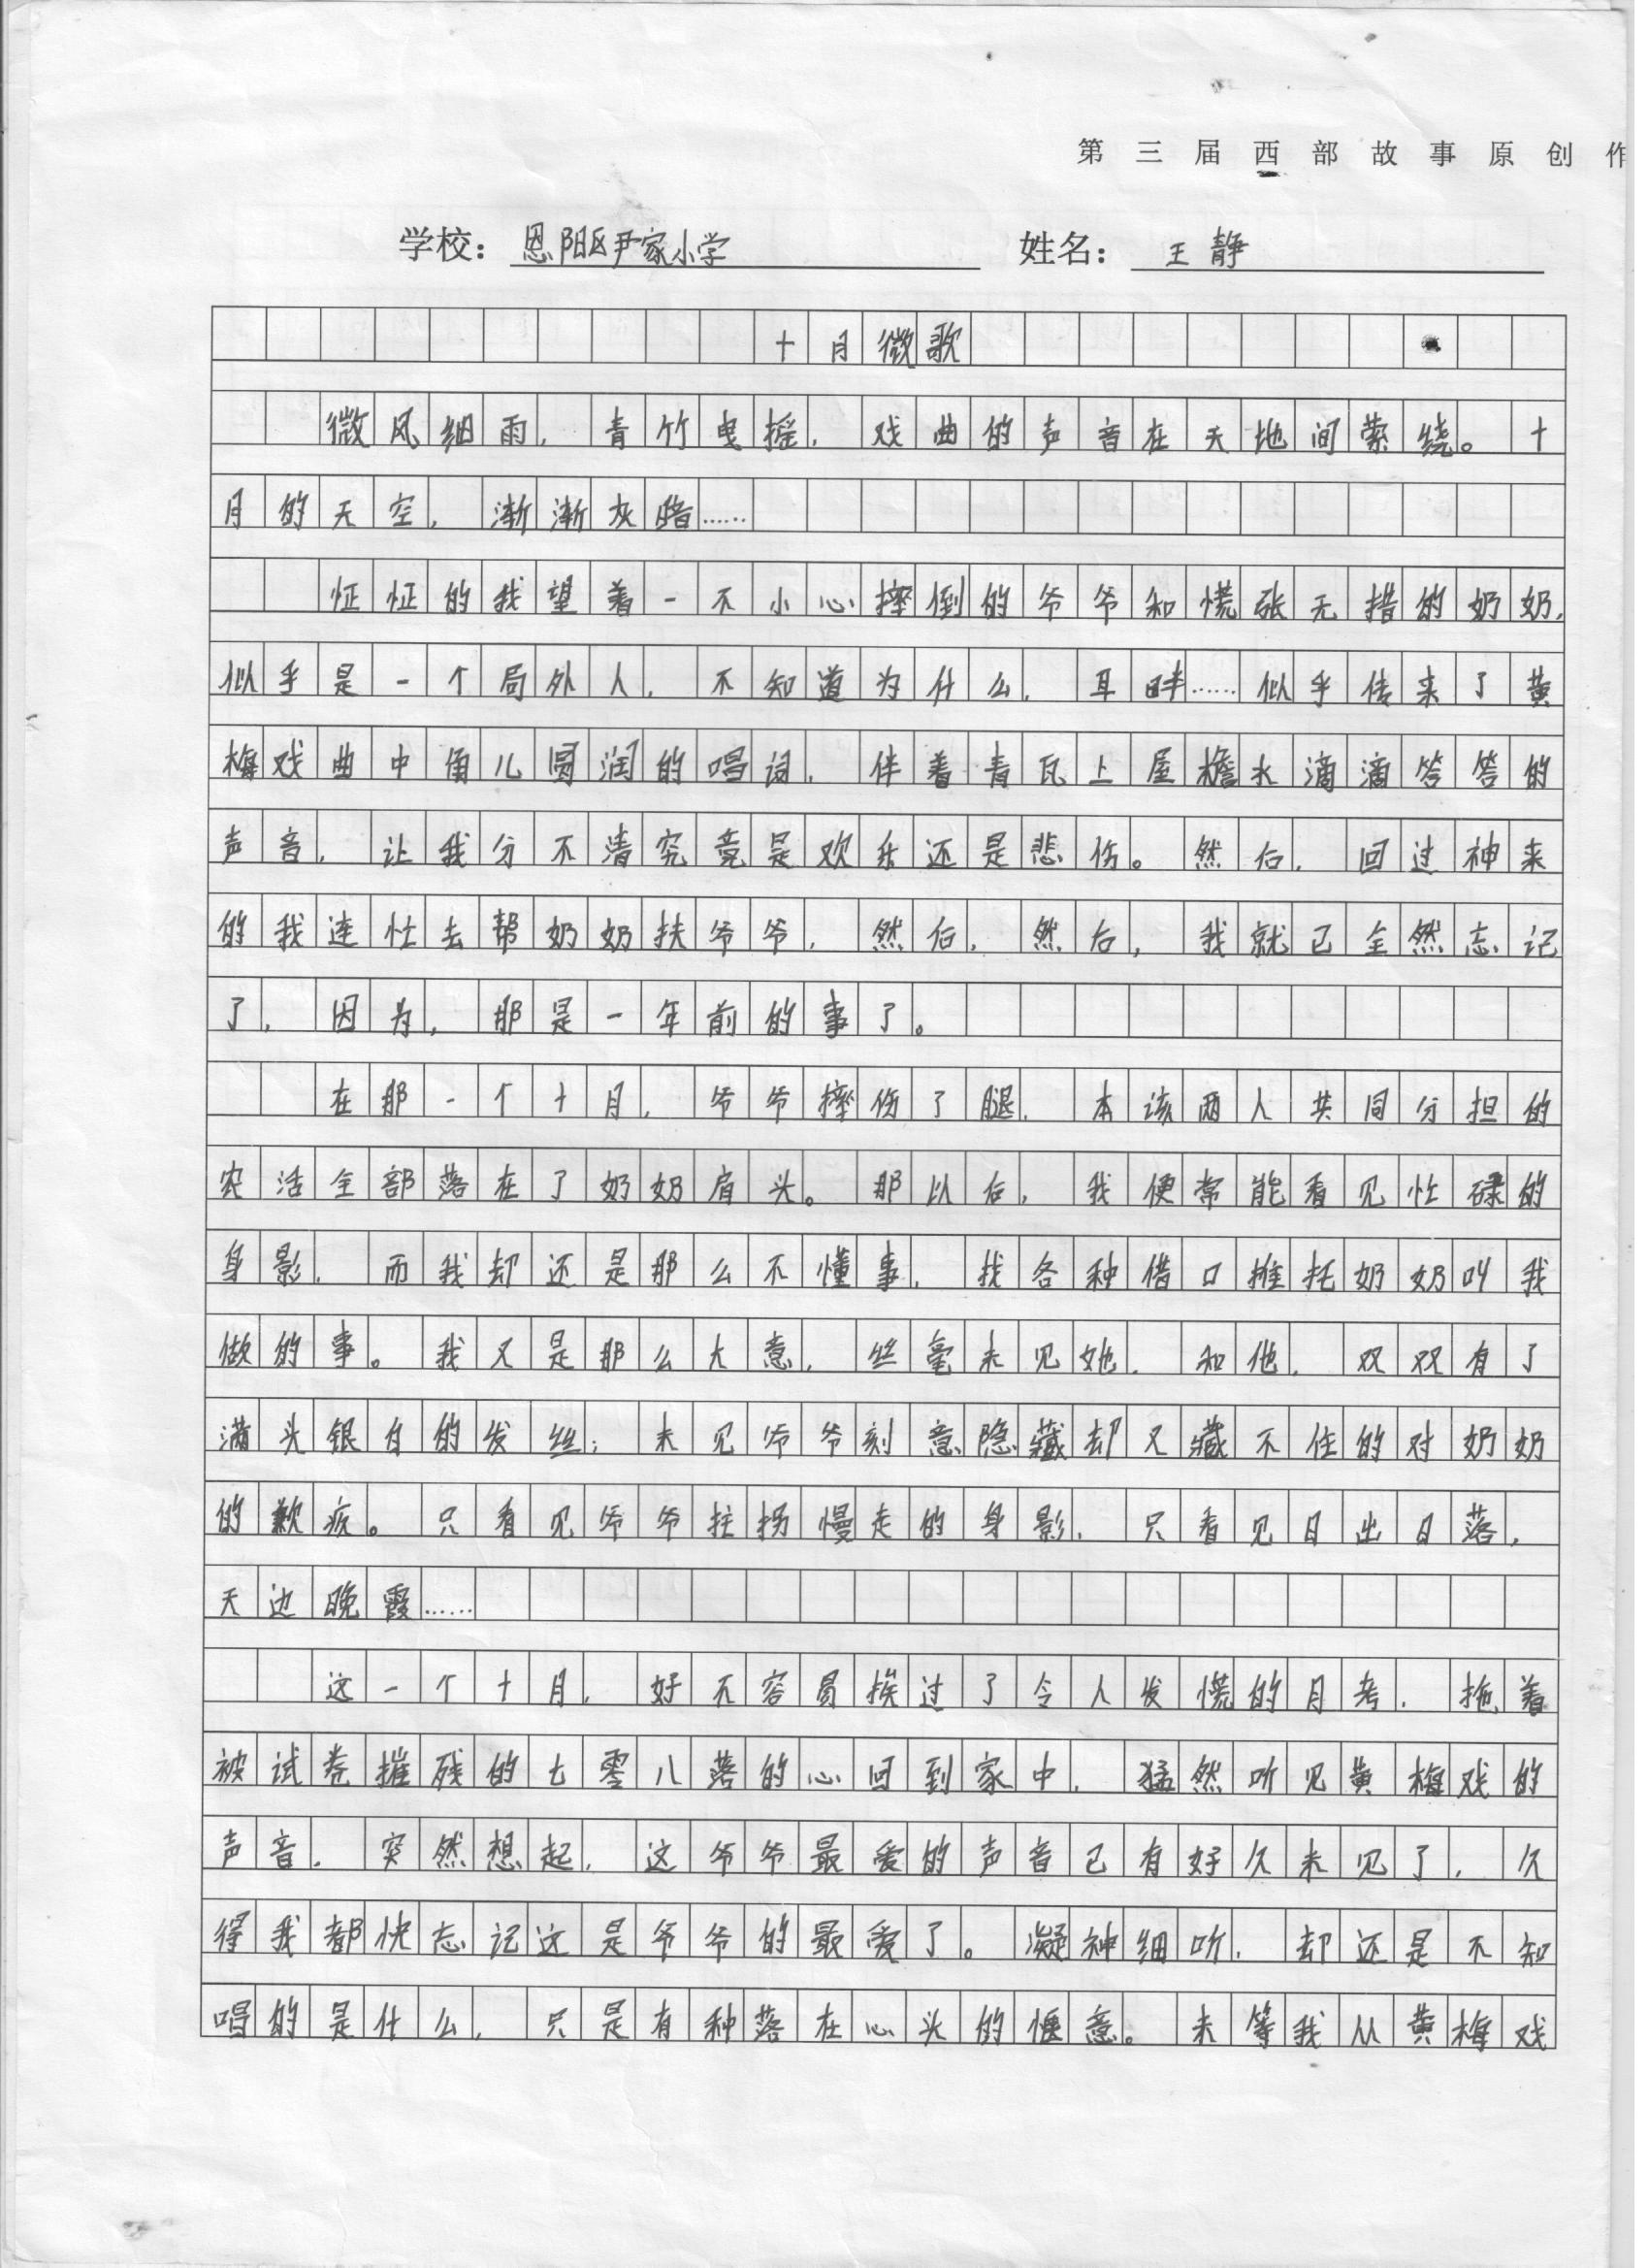 第三届西部故事原创作
学校：恩阳区尹家小学 姓名：王静
十月微歌
微风细雨，青竹曳摇，戏曲的声音在天地间萦绕。十
月的天空，渐渐灰暗……
怔怔的我望着一不小心摔倒的爷爷和慌张无措的奶奶，
似乎是一个局外人，不知道为什么，耳畔……似乎传来了黄
梅戏曲中角儿圆润的唱词，伴着青瓦上屋檐水滴滴答答的
声音，让我分不清究竟是欢乐还是悲伤。然后，回过神来
的我连忙去帮奶奶扶爷爷，然后，然后，我就已全然忘记
了，因为，那是一年前的事了。
在那一个十月，爷爷摔伤了腿，本该两人共同分担的
农活全部落在了奶奶肩头。那以后，我便常能看见忙碌的
身影，而我却还是那么不懂事，找各种借口推托奶奶叫我
做的事。我又是那么大意，丝毫未见她，和他，双双有了
满头银白的发丝；未见爷爷刻意隐藏却又藏不住的对奶奶
的歉疚。只看见爷爷拄拐慢走的身影，只看见日出日落，
天边晚霞……
这一个十月，好不容易挨过了令人发慌的月考，拖着
被试卷摧残的七零八落的心回到家中，猛然听见黄梅戏的
声音，突然想起，这爷爷最爱的声音已有好久未见了，久
得我都快忘记这是爷爷的最爱了。凝神细听，却还是不知
唱的是什么，只是有种落在心头的惬意。未等我从黄梅戏